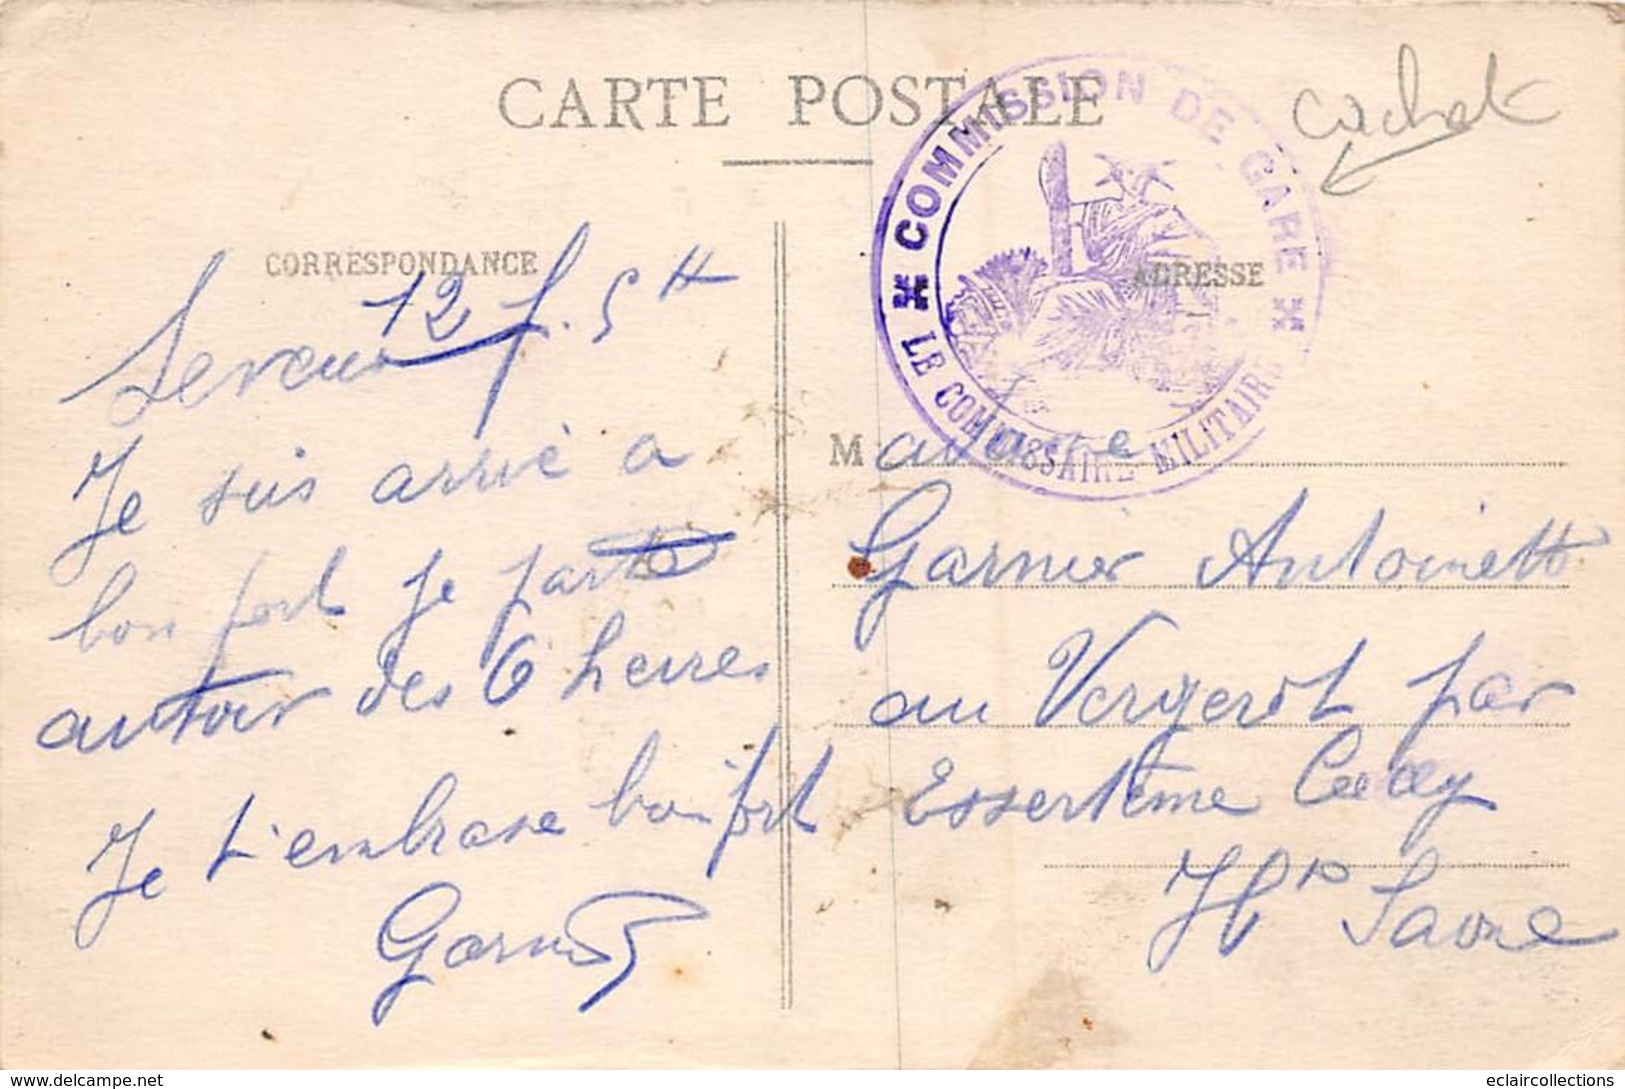 CARTE POSTALE
cachet
COMMISSION DE GARE
LE COMMISSAIRE MILITAIRE
CORRESPONDANCE
ADRESSE
12 f. 5 H
Je suis arrivé a
bon port je parte
autour des 6 heures
Je t'embrasse bon fort
Garnier
Madame
Garnier Antoinette
au Vergerot par
Essertenne Cecey
Hte Saone
eclaircollections
www.delcampe.net